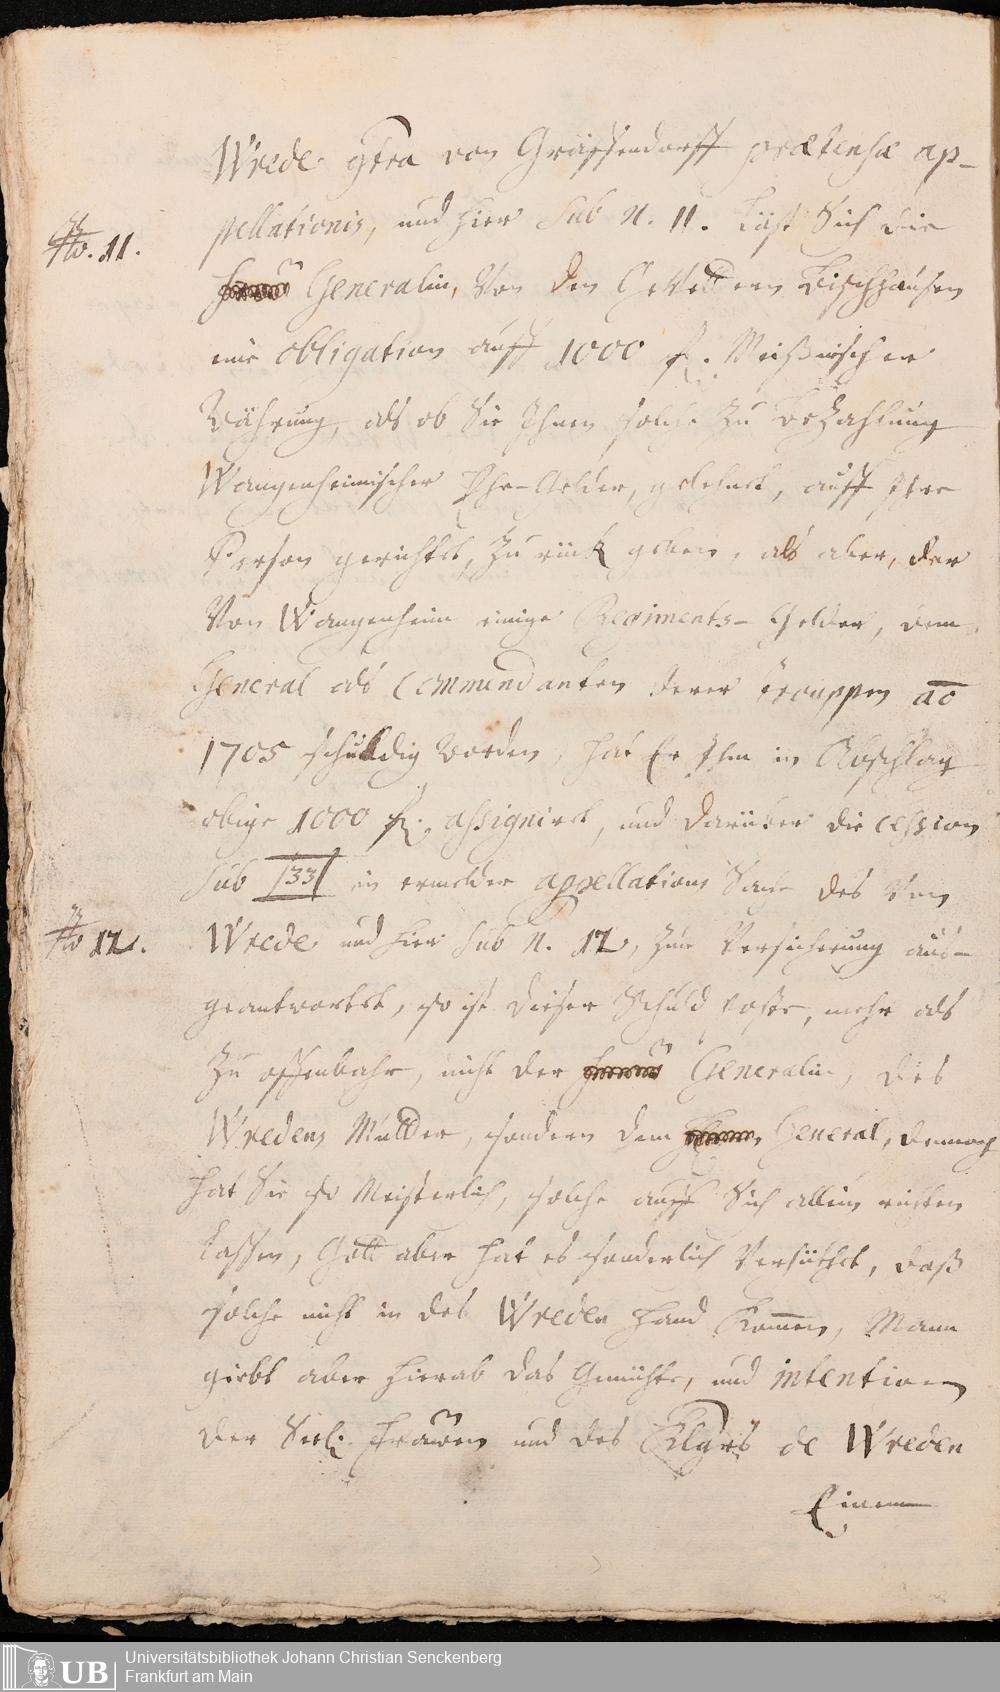 Wrede ctra von Gräffendorff prætensæ ap-
pellationis, und hier sub N. 11. läst Sich die
No. 11.
Generalin, Von den Gevettern Bischhausen
eine obligation auff 1000 fl. Meißnischer
Währung, als ob Sie Ihnen solche zu Bezahlung
Wangenheimischer Ehe-Gelder, gelehnet, auff Ihre
Person gerichtet, zurück geben, als aber, der
Von Wangenheim einige Regiments-Gelder, dem
General als Commendanten derer trouppen ao
1705 schuldig worden, hat Er Ihm in Abschlag
obige 1000 fl. assigniret, und darüber die cession
sub 33 in ermelder appellations Sache des Von
No 12.
Wrede und hier sub N. 12, zur Versicherung aus-
geantwortet, so ist dieser Schuld posten, mehr als
zu offenbahr, nicht der Generalin, des
Wredens Mutter, sondern dem General, dennoch
hat Sie so Meisterlich, solche auff Sich allein richten
lassen, Gott aber hat es sonderlich Verhütet, daß
solche nicht in des Wreden Hand kommen, Mann
giebt aber hierab das Gemühte, und intention
der Seel. Frauen und des Klägers de Wreden
Einem
Universitätsbibliothek Johann Christian Senckenberg
UB
Frankfurt am Main